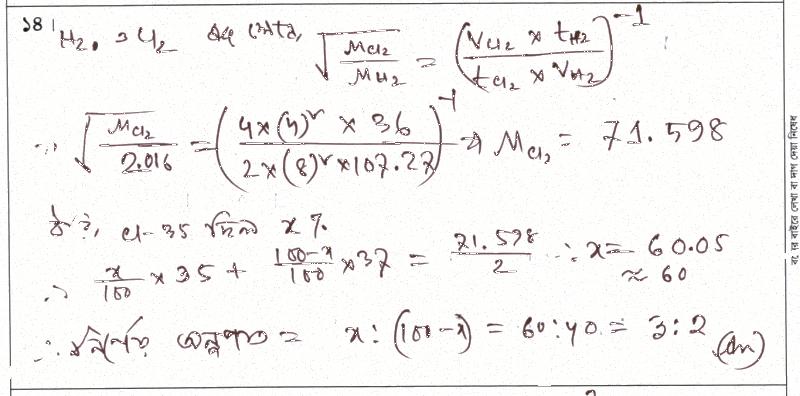 ১৪| H₂ ও Cl₂ এর ক্ষেত্রে, √(M_Cl₂/M_H₂) = ((V_Cl₂ × t_H₂)/(t_Cl₂ × V_H₂))⁻¹
∴ √(M_Cl₂/2.016) = ((4×(4)² × 36)/(2×(8)²×107.27))⁻¹ ⇒ M_Cl₂ = 71.598
ধরি, Cl-35 ছিল x%
∴ x/100 × 35 + (100-x)/100 × 37 = 71.598/2 ∴ x = 60.05
≈ 60
∴ নির্ণেয় অনুপাত = x : (100-x) = 60:40 = 3:2 (An)
বাইরে লেখা বা দাগ দেয়া নিষেধ